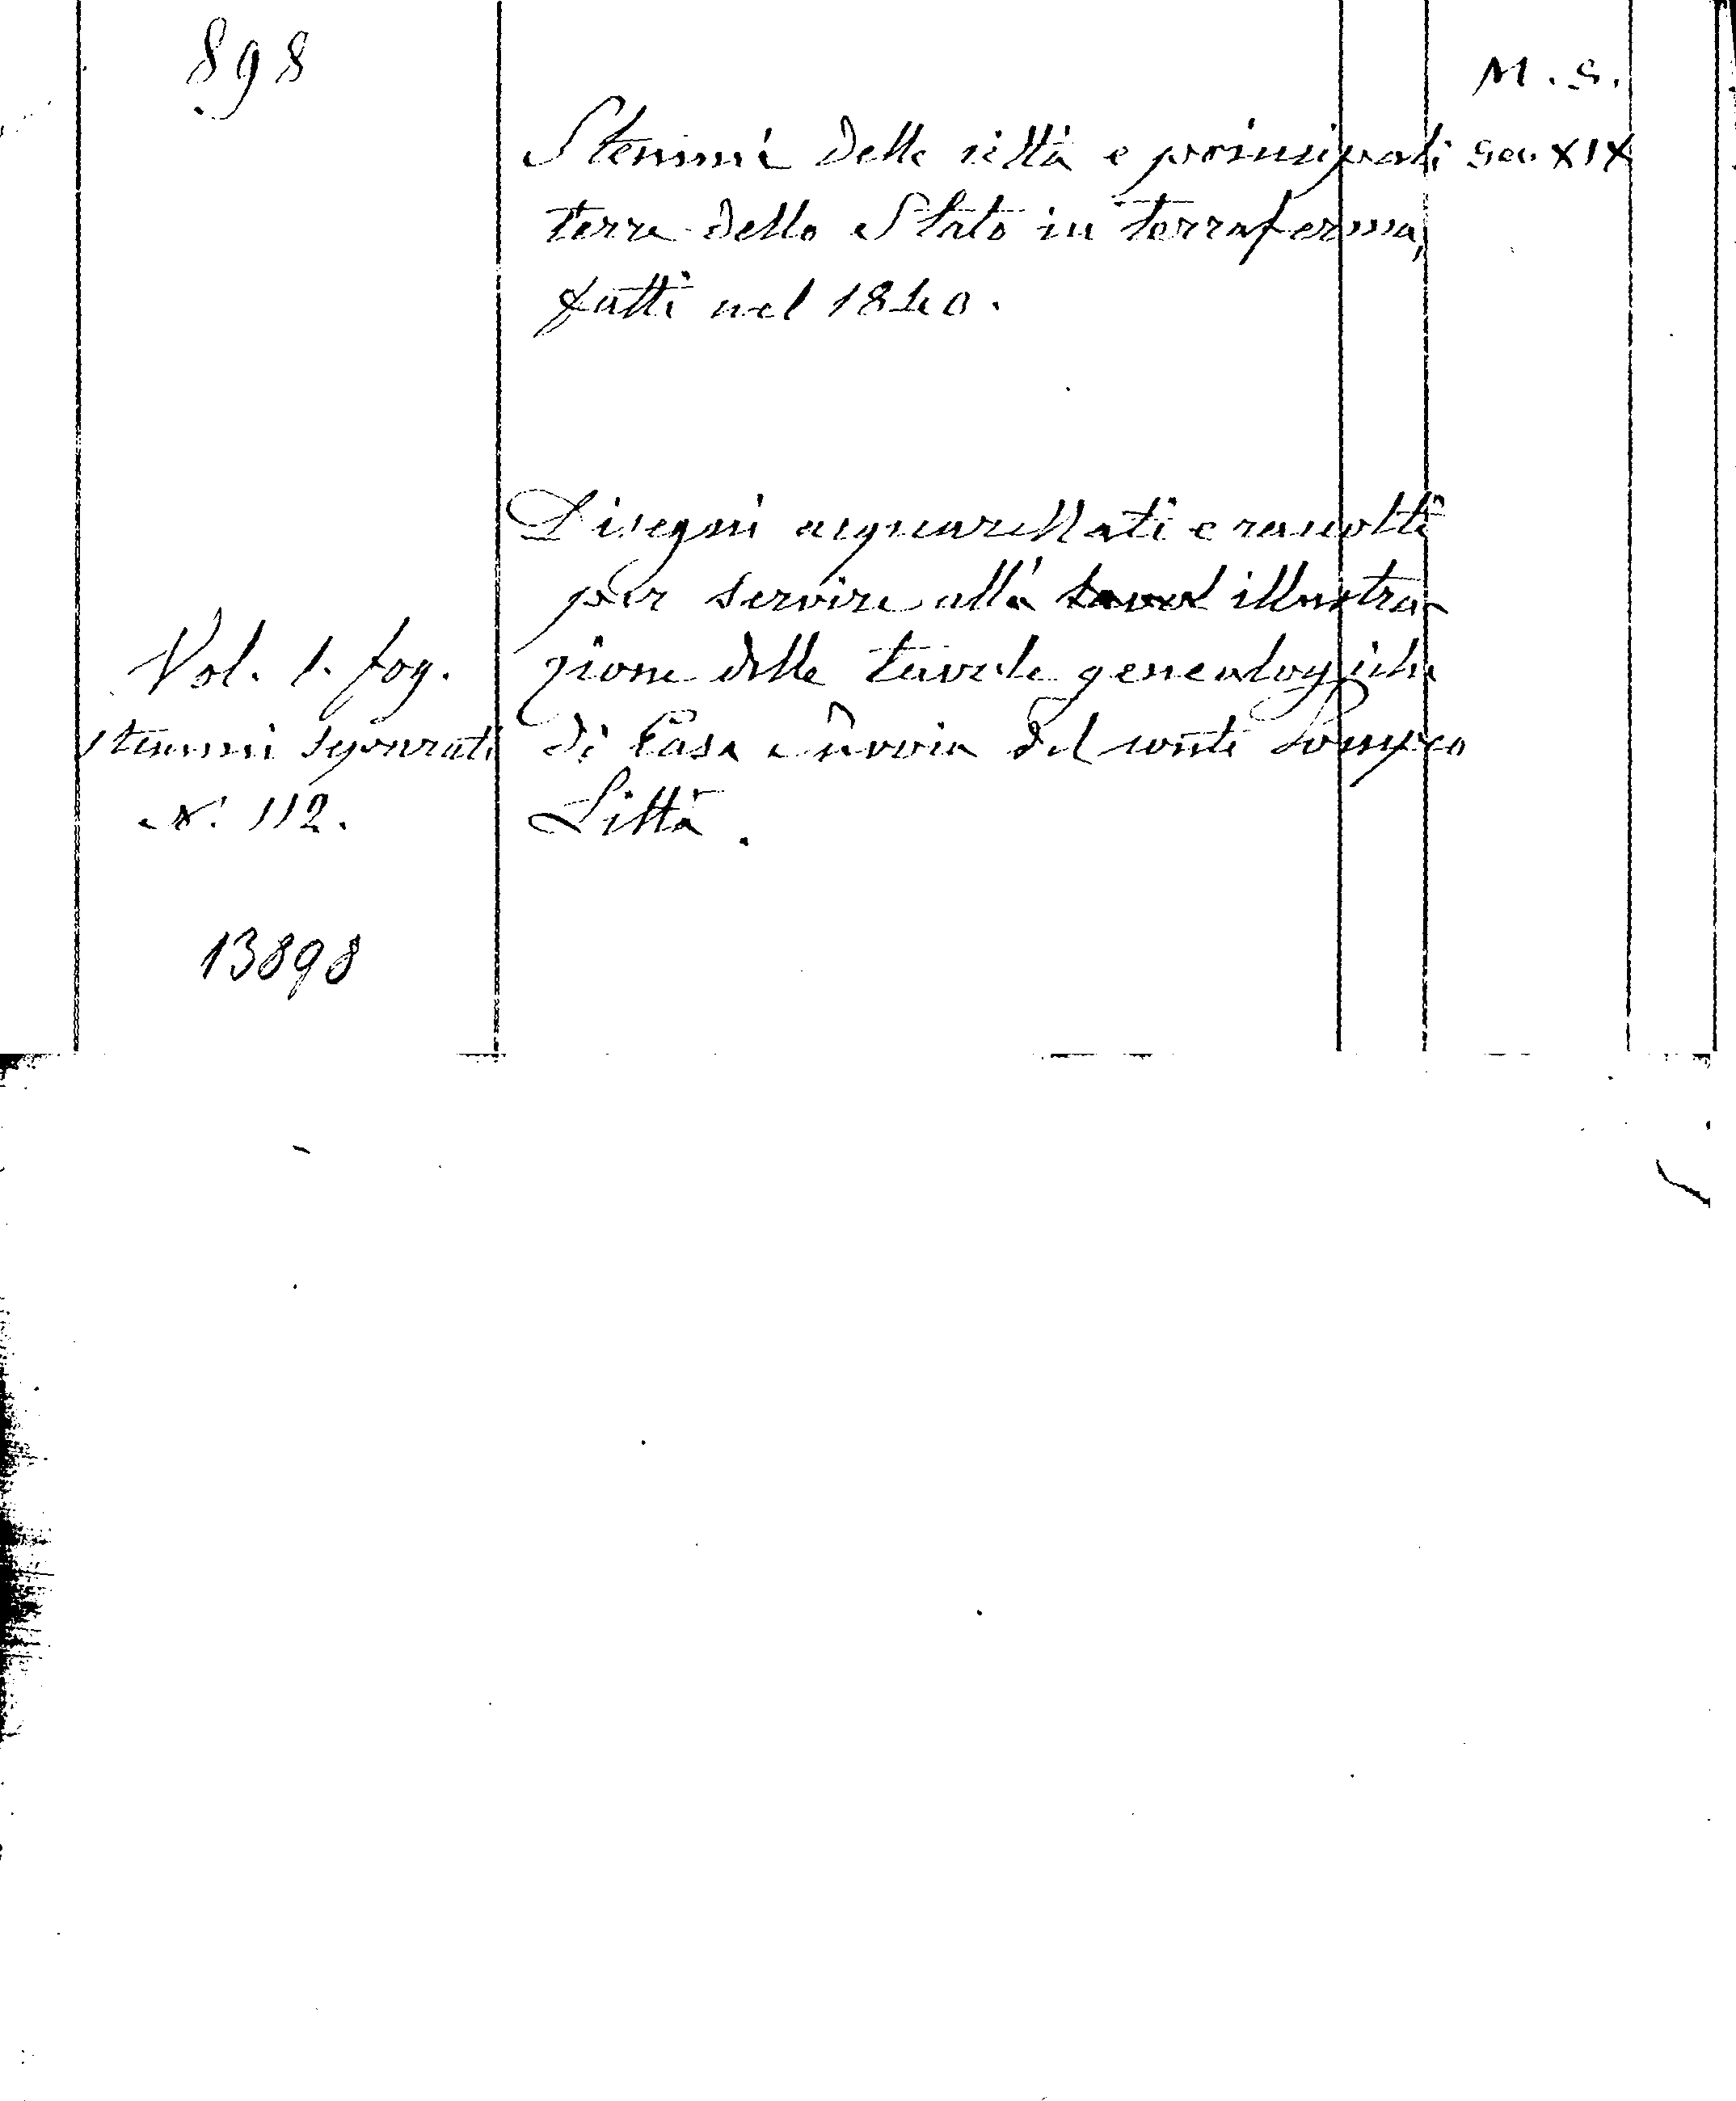 898
M. S.
Stemmi delle città e principali sec. XIX
terre dello Stato in terraferma,
fatti nel 1840.
Disegni acquarellati e raccolti
per servire alla illustra-
Vol. 1. fog.
zione delle tavole genealogiche
stemmi separati
di Casa Savoia del conte Pompeo
N. 112.
Littà.
13898